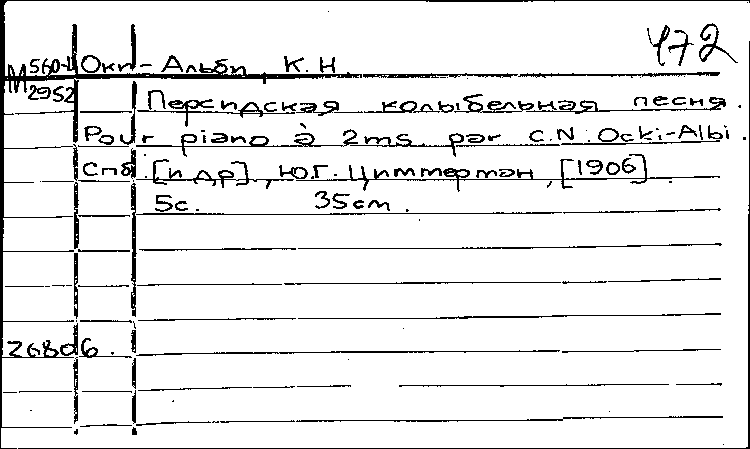 472
М 560-4 Оки-Альби, К.Н.
2952
Персидская колыбельная песня.
Pour piano à 2ms. par C.N. Ocki-Albi.
Спб. [и др], Ю.Г. Циммерман, [1906].
5с. 35см.
26806.